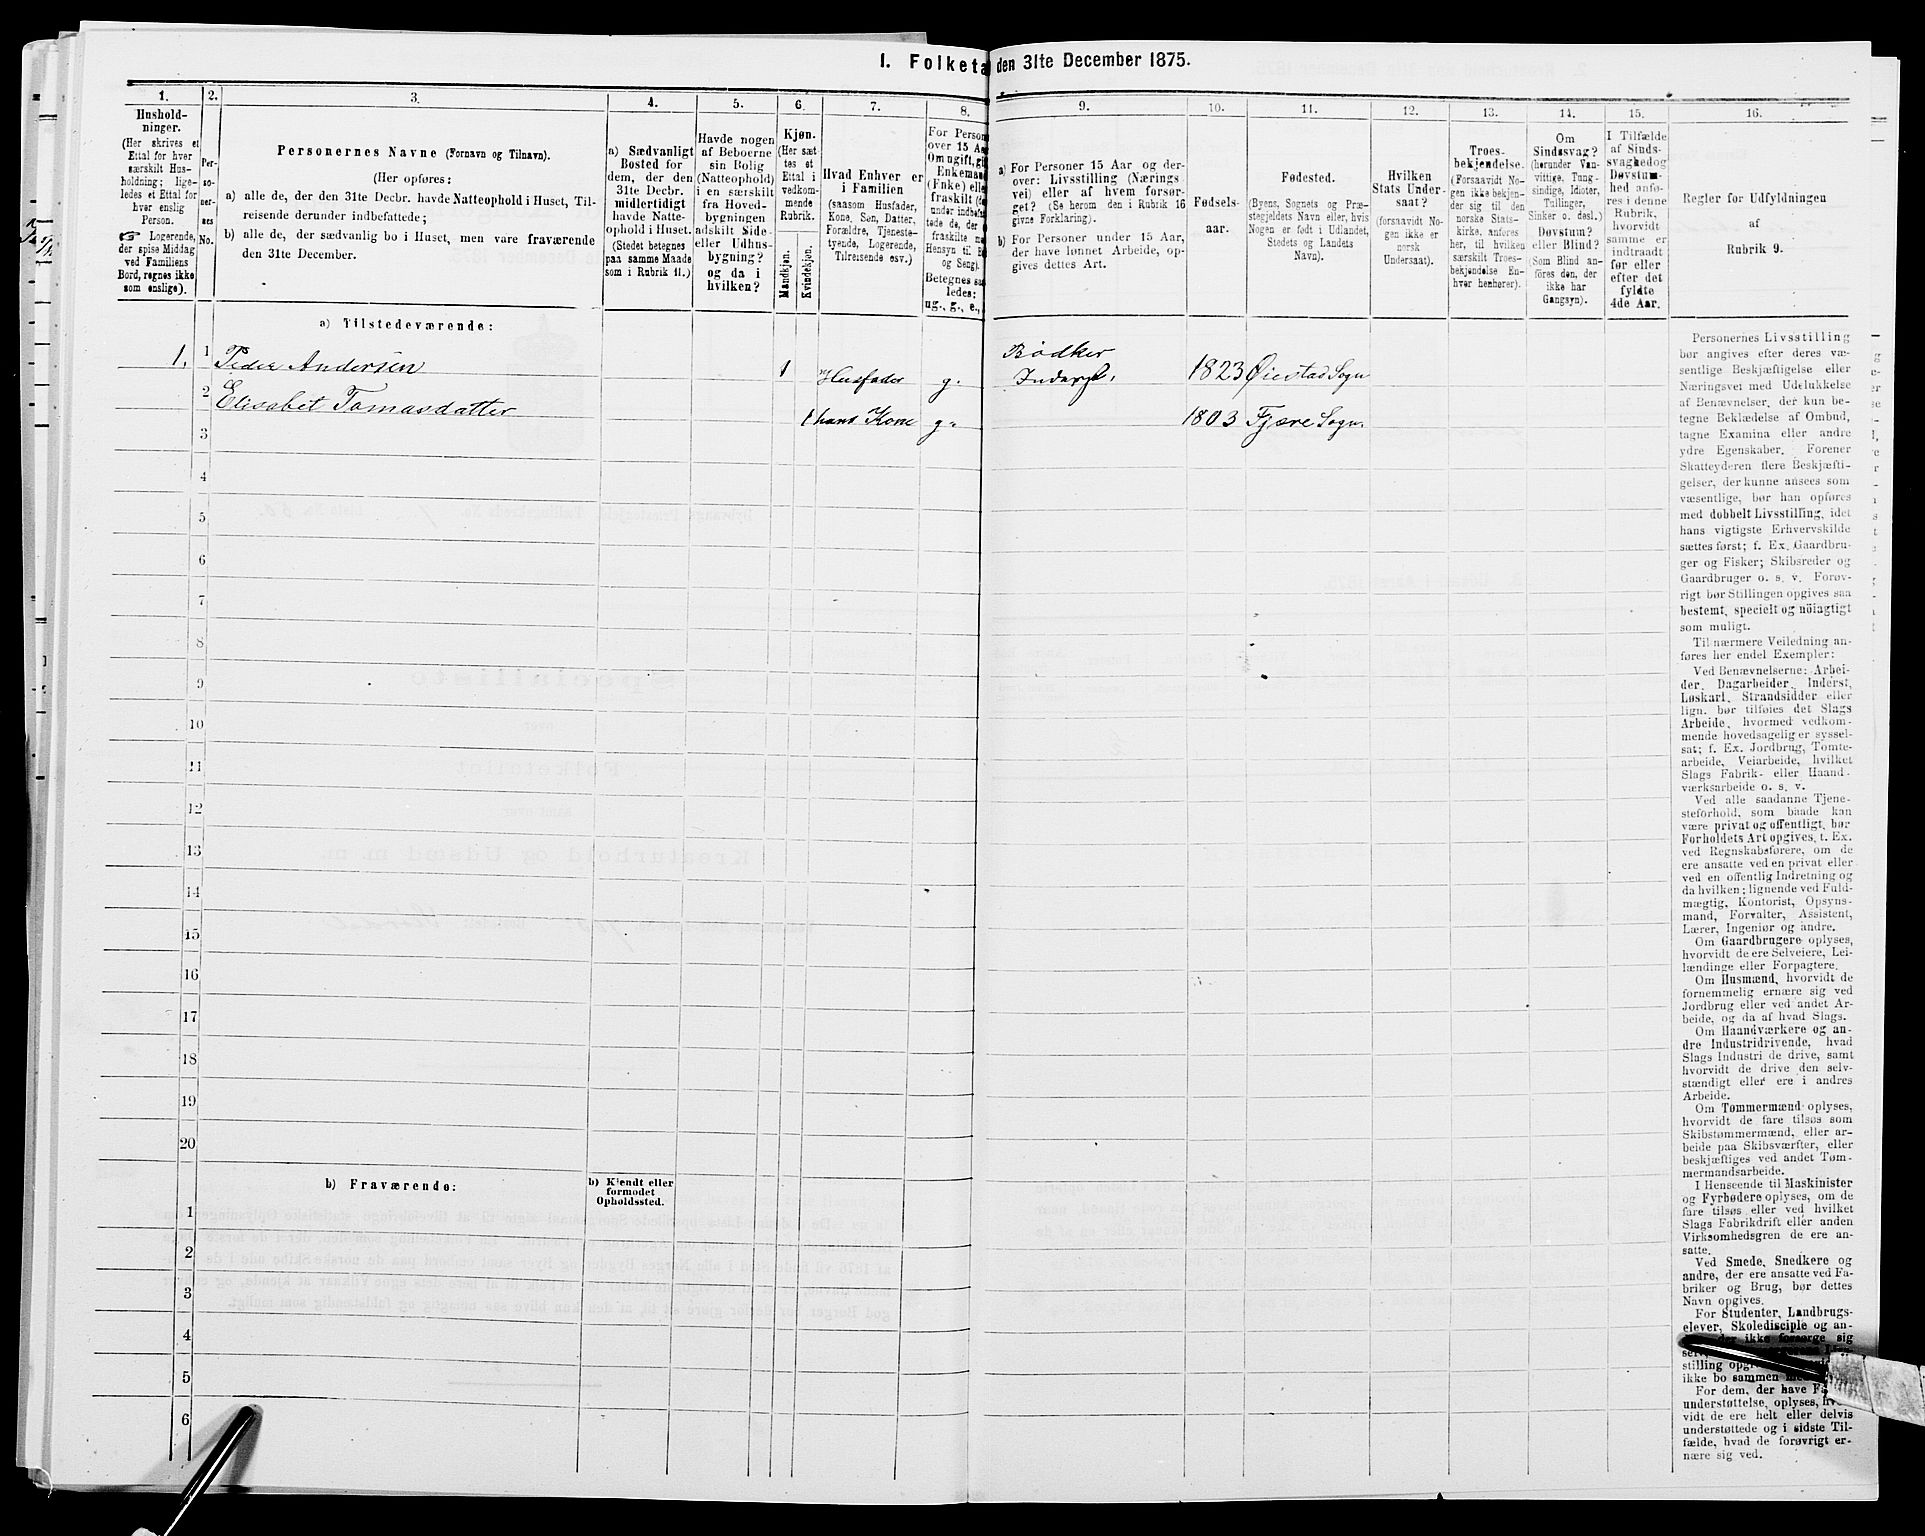 1. Folketa
den 31te December 1875.
1.
2.
3.
4.
5.
6.
7.
8.
9.
10.
11.
12.
13.
14.
15.
16.
Hushold-
ninger.
(Her skrives et
Ettal for hver
særskilt Hus-
holdning; lige-
ledes et Ettal for
hver enslig
Person.
☞ Logerende,
der spise Middag
ved Familiens
Bord, regnes ikke
som enslige).
Per-
so-
ner-
nes
No.
Personernes Navne (Fornavn og Tilnavn).
(Her opføres:
a) alle de, der den 31te Decbr. havde Natteophold i Huset, Til-
reisende derunder indbefattede;
b) alle de, der sædvanlig bo i Huset, men vare fraværende
den 31te December.
a) Sædvanligt
Bosted for
dem, der den
31te Decbr.
midlertidigt
havde Natte-
ophold i Huset.
(Stedet betegnes
paa samme Maade
som i Rubrik 11.)
Havde nogen
af Beboerne
sin Bolig
(Natteophold)
i en særskilt
fra Hoved-
bygningen
adskilt Side-
eller Udhus-
bygning?
og da i
hvilken?
Kjøn.
(Her sæt-
tes et
Ettal i
vedkom-
mende
Rubrik.
Mandkjøn.
Kvindekjøn.
Hvad Enhver er
i Familien
(saasom Husfader,
Kone, Søn, Datter,
Forældre, Tjeneste-
tyende, Logerende,
Tilreisende osv.)
For Person
over 15 Aar
Om ugift, gif
Enkeman
(Enke) elle
fraskilt (de
under indbefat
tede de, der
fraskilte me
Hensyn til B
og Seng).
Betegnes saa
ledes:
ug., g., e.,
a) For Personer 15 Aar og der-
over: Livsstilling (Nærings-
vei) eller af hvem forsør-
get? (Se herom den i Rubrik 16
givne Forklaring).
b) For Personer under 15 Aar,
der have lønnet Arbeide, op-
gives dettes Art.
Fødsels-
aar.
Fødested.
(Byens, Sognets og Præ-
stegjeldets Navn eller, hvis
Nogen er født i Udlandet,
Stedets og Landets
Navn).
Hvilken
Stats Under-
saat?
(forsaavidt No-
gen ikke er
norsk
Undersaat).
Troes-
bekjendelse.
(Forsaavidt No-
gen ikke bekjen-
der sig til den
norske Stats-
kirke, anføres
her, til hvilken
særskilt Troes-
bekjendelse En-
hver henhører).
Om
Sindssvag?
(herunder Van-
vittige, Tung-
sindige, Idioter,
Tullinger,
Sinker o. desl.)
Døvstum?
eller Blind?
(Som Blind an-
føres den, der
ikke har
Gangsyn).
I Tilfælde
af Sinds-
svaghed og
Døvstum-
hed anfø-
res i denne
Rubrik,
hvorvidt
samme er
indtraadt
før eller
efter det
fyldte
4de Aar.
Regler for Udfyldningen
af
Rubrik 9.
a) Tilstedeværende:
1. 1 Peder Andersen 1 Husfader g. Bødker
Inders. 1823 Øiestad Sogn
2 Elisabet Tomasdatter 1 hans Kone g. 1803 Fjære Sogn
3
4
5
6
7
8
9
10
11
12
13
14
15
16
17
18
19
20
b) Fraværende:
b) Kjendt eller
formodet
Opholdssted.
1
2
3
4
5
6
Personernes Livsstilling
bør angives efter deres væ-
sentlige Beskjæftigelse eller
Næringsvei med Udelukkelse
af Benævnelser, der kun be-
tegne Beklædelse af Ombud,
tagne Examina eller andre
ydre Egenskaber. Forener
Skatteyderen flere Beskjæfti-
gelser, der kunne ansees som
væsentlige, bør han opføres
med dobbelt Livsstilling, idet
hans vigtigste Erhvervskilde
sættes først; f. Ex. Gaardbru-
ger og Fisker; Skibsreder og
Gaardbruger o. s. v. Forøv-
rigt bør Stillingen opgives saa
bestemt, specielt og nöiagtigt
som muligt.
Til nærmere Veiledning an-
føres her endel Exempler:
Ved Benævnelserne: Arbei-
der, Dagarbeider, Inderst,
Løskarl, Strandsidder eller
lign. bør tilføies det Slags
Arbeide, hvormed vedkom-
mende hovedsagelig er syssel-
sat; f. Ex. Jordbrug, Tomte-
arbeide, Veiarbeide, hvilket
Slags Fabrik- eller Haand-
værksarbeide o. s. v.
Ved alle saadanne Tjene-
steforhold, som baade kan
være privat og offentligt, bør
Forholdets Art opgives, t. Ex.
ved Regnskabsførere, om de
ere ansatte ved en privat eller
ved en offentlig Indretning og
da hvilken; lignende ved Fuld-
mægtig, Kontorist, Opsyns-
mand, Forvalter, Assistent,
Lærer, Ingeniør og andre.
Om Gaardbrugere oplyses,
hvorvidt de ere Selveiere, Lei-
lændinge eller Forpagtere.
Om Husmænd, hvorvidt de
fornemmelig ernære sig ved
Jordbrug eller ved andet Ar-
beide, og da af hvad Slags.
Om Haandværkere og an-
dre Industridrivende, hvad
Slags Industri de drive, samt
hvorvidt de drive den selv-
stændigt eller ere i andres
Arbeide.
Om Tømmermænd oplyses,
hvorvidt de fare tilsøs som
Skibstømmermænd, eller ar-
beide paa Skibsværfter, eller
beskjæftiges ved andet Tøm-
mermandsarbeide.
I Henseende til Maskinister
og Fyrbødere oplyses, om de
fare tilsøs eller ved hvilket
Slags Fabrikdrift eller anden
Virksomhedsgren de ere an-
satte.
Ved Smede, Snedkere og
andre, der ere ansatte ved Fa-
briker og Brug, bør dettes
Navn opgives.
For Studenter, Landbrugs-
elever, Skoledisciple og an-
der ikke forsørge sig
stilling
ikke bo sammen
For dem, der have
understøttelse, oplyses,
vidt de ere helt eller delvis
understøttede og i sidste Til-
fælde, hvad de forøvrigt er-
nære sig ved.